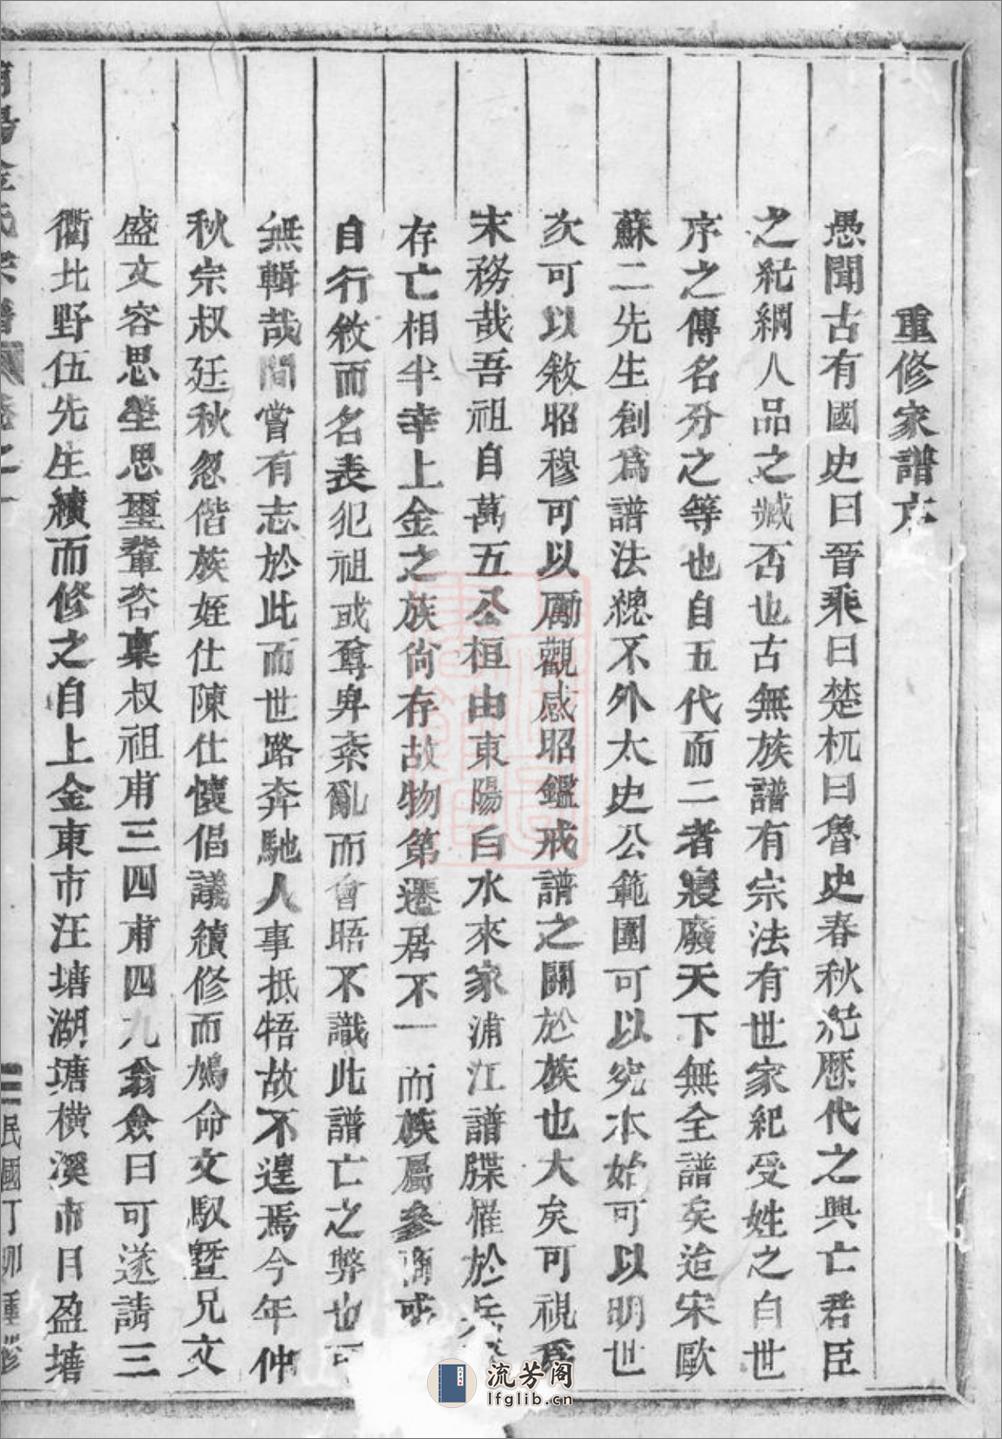 重修家譜序
愚聞古有國史曰晉乘曰楚杌曰魯史春秋紀歷代之興亡君臣
之紀綱人品之臧否也古無族譜有宗法有世家紀受姓之自世
序之傳名分之等也自五代而二者寖廢天下無全譜矣迨宋歐
蘇二先生創爲譜法總不外太史公範圍可以究本始可以明世
次可以敘昭穆可以勵觀感昭鑑戒譜之關於族也大矣可視爲
末務哉吾祖自萬五公桓由東陽白水來家浦江譜牒罹於兵
存亡相半幸上金之族尙存故物第遷居不一而族屬參商或
自行敘而名表犯祖或尊卑紊亂而會晤不識此譜亡之弊也可
無輯哉間嘗有志於此而世路奔馳人事抵牾故不遑焉今年仲
秋宗叔廷秋忽偕族姪仕陳仕懷倡議續修而鳩命文馭暨兄文
盛文容思瑩思璽輩咨稟叔祖甫三四甫四九翁僉曰可遂請三
衢北野伍先生續而修之自上金東市汪塘湖塘橫溪市日盈塘
浦陽金氏宗譜 卷之一
民國丁卯重修
流芳阁
lfglib.com